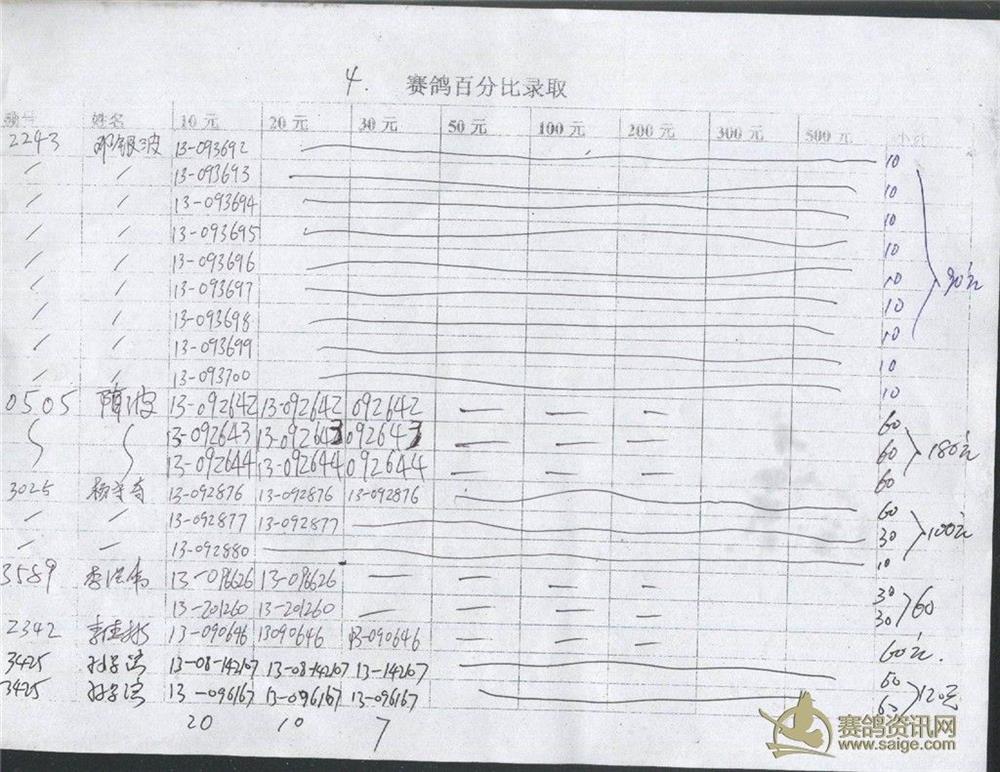 4. 赛鸽百分比录取
姓名 10元 20元 30元 50元 100元 200元 300元 500元 小计
2243 邓银波 13-093692 10
13-093693 10
13-093694 10
13-093695 10
13-093696 10 90元
13-093697 10
13-093698 10
13-093699 10
13-093700 10
0505 隋波 13-092642 13-092642 092642 — — —
13-092643 13-092643 092643 — — — 60
13-092644 13-092644 092644 — — — 60 180元
60
3025 13-092876 13-092876 13-092876 60
13-092877 13-092877 30 100元
13-092880 10
3589 13-098626 13-098626 — — — — 30
13-201260 13-201260 — — — — 30 60
2342 13-090646 13090646 13-090646 — — — 60元.
3425 13-08-142107 13-08-142107 13-142107 60
3425 13-096167 13-096167 13-096167 60 120元
20 10 7
赛鸽资讯网
www.saige.com